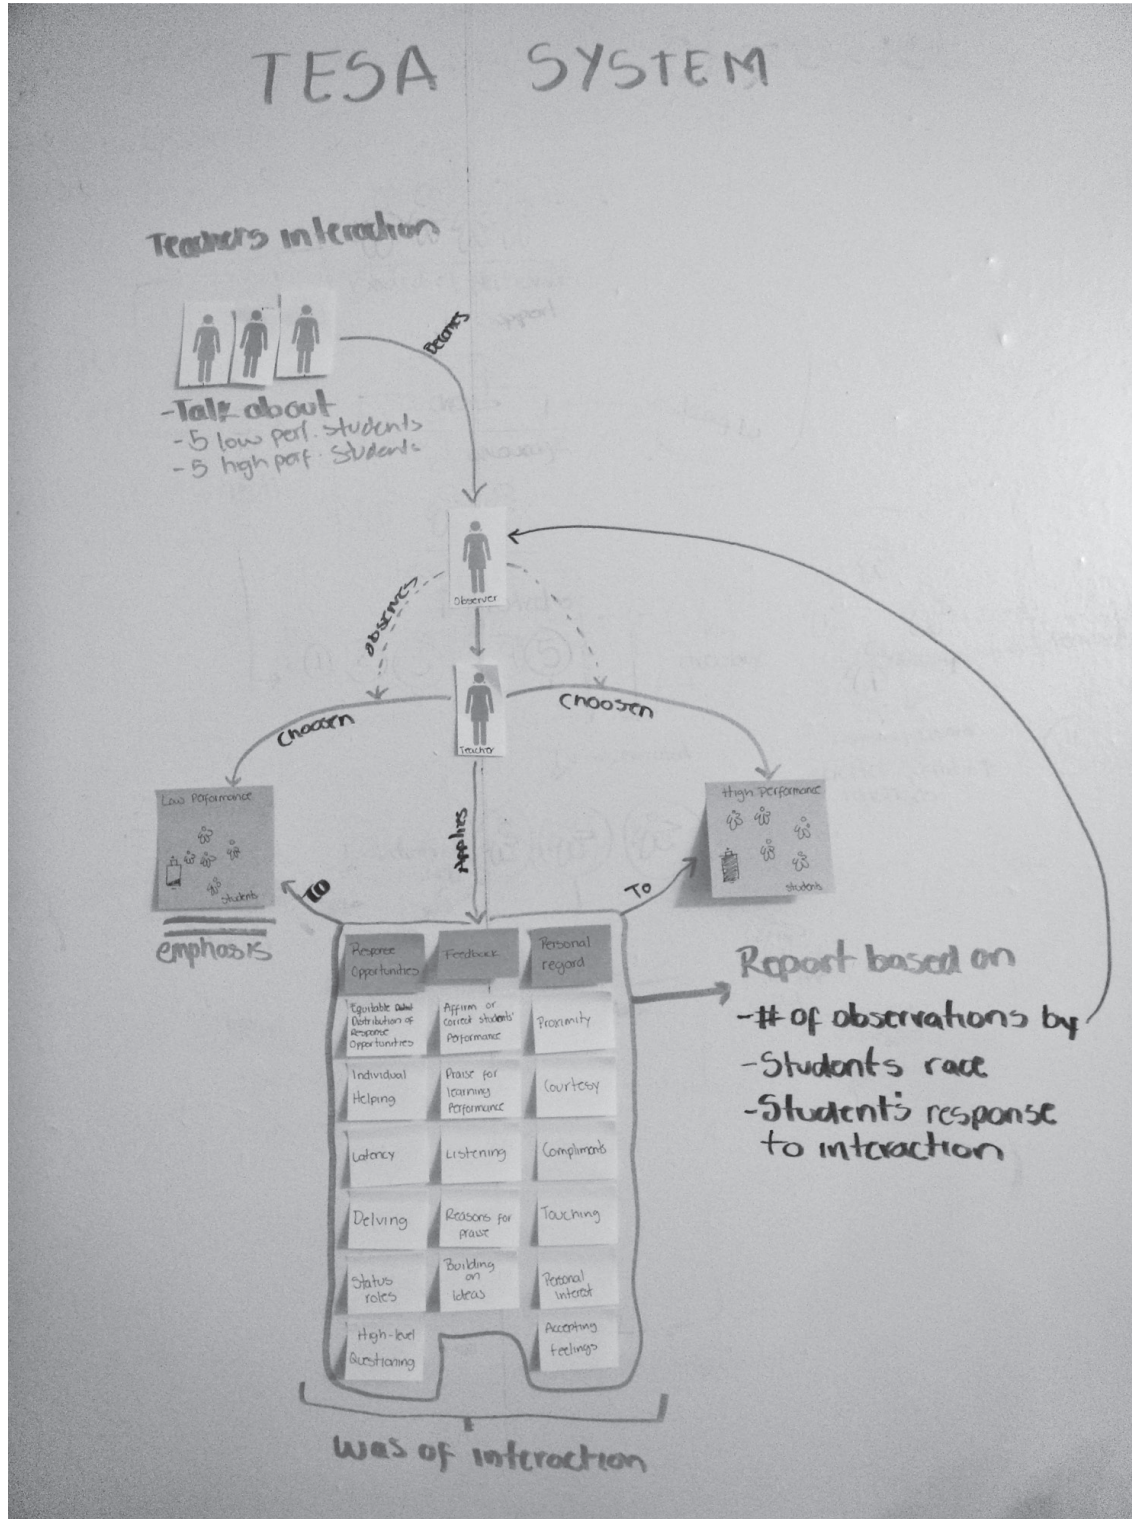 TESA SYSTEM
Teachers interaction
Becomes
-Talk about
-5 low perf. students
-5 high perf. students
Observer
observes
Teacher
Choosen
Choosen
Low Performance
students
emphasis
High Performance
students
Applies
To
To
Response
Opportunities
Feedback
Personal
regard
Equitable
Distribution of
Response
Opportunities
Affirm or
correct students'
Performance
Proximity
Individual
Helping
Praise for
learning
Performance
Courtesy
Latency
Listening
Compliments
Delving
Reasons for
praise
Touching
Status
roles
Building
on
Ideas
Personal
interest
High-level
Questioning
Accepting
Feelings
Report based on
-# of observations by
-Students race
-Student's response
to interaction
was of interaction